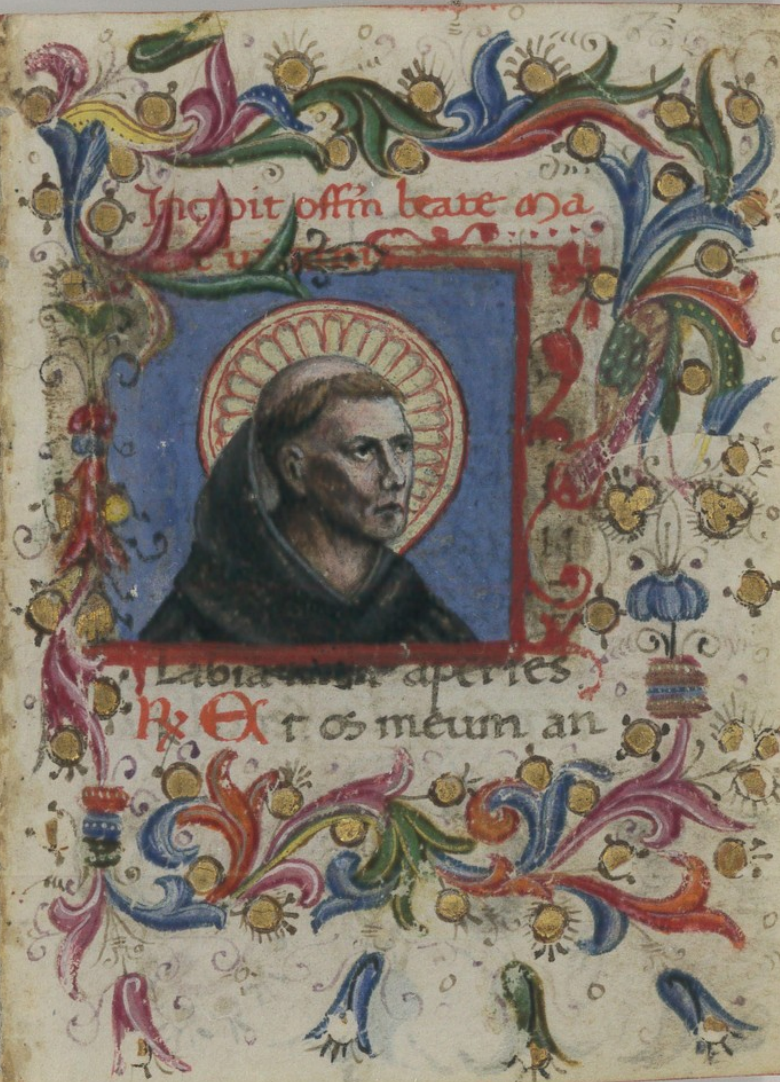 Incipit offm beate ma
Labia aperies
℞ Et os meum an